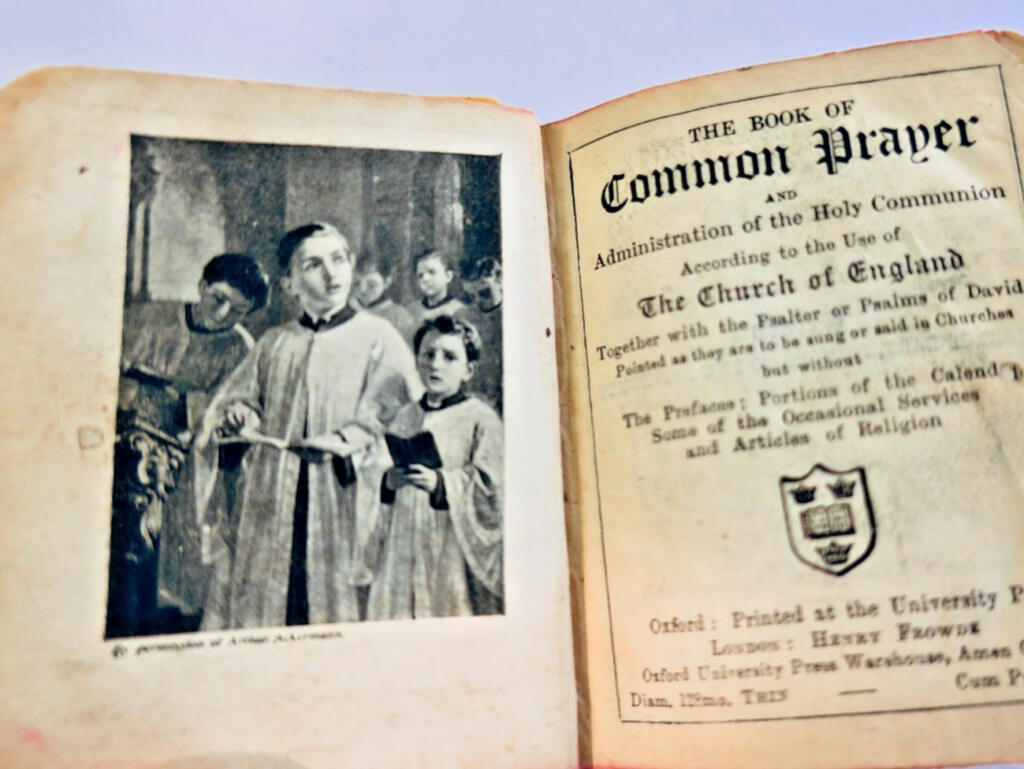 By permission of Arthur Ackermann.
THE BOOK OF
Common Prayer
AND
Administration of the Holy Communion
According to the Use of
The Church of England
Together with the Psalter or Psalms of David
Pointed as they are to be sung or said in Churches
but without
The Prefaces; Portions of the Calend
Some of the Occasional Services
and Articles of Religion
Oxford: Printed at the University P
London: HENRY FROWDE
Oxford University Press Warehouse, Amen
Diam. 128mo. THIS — Cum P